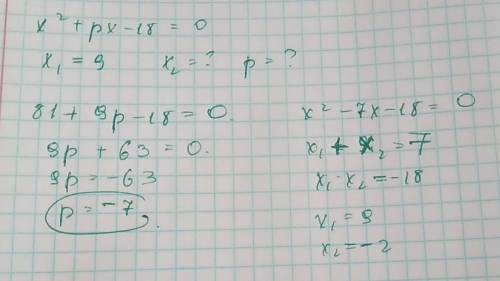 x² + px - 18 = 0
x₁ = 9 x₂ = ? p = ?
81 + 9p - 18 = 0.
9p + 63 = 0.
9p = -63
p = -7.
x² - 7x - 18 = 0
x₁ + x₂ = 7
x₁ · x₂ = -18
x₁ = 9
x₂ = -2